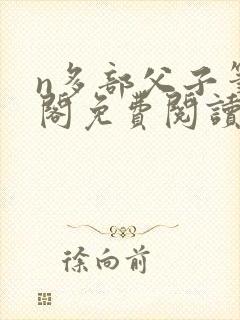 n多部父子筆
閣免費閱讀
徐向前